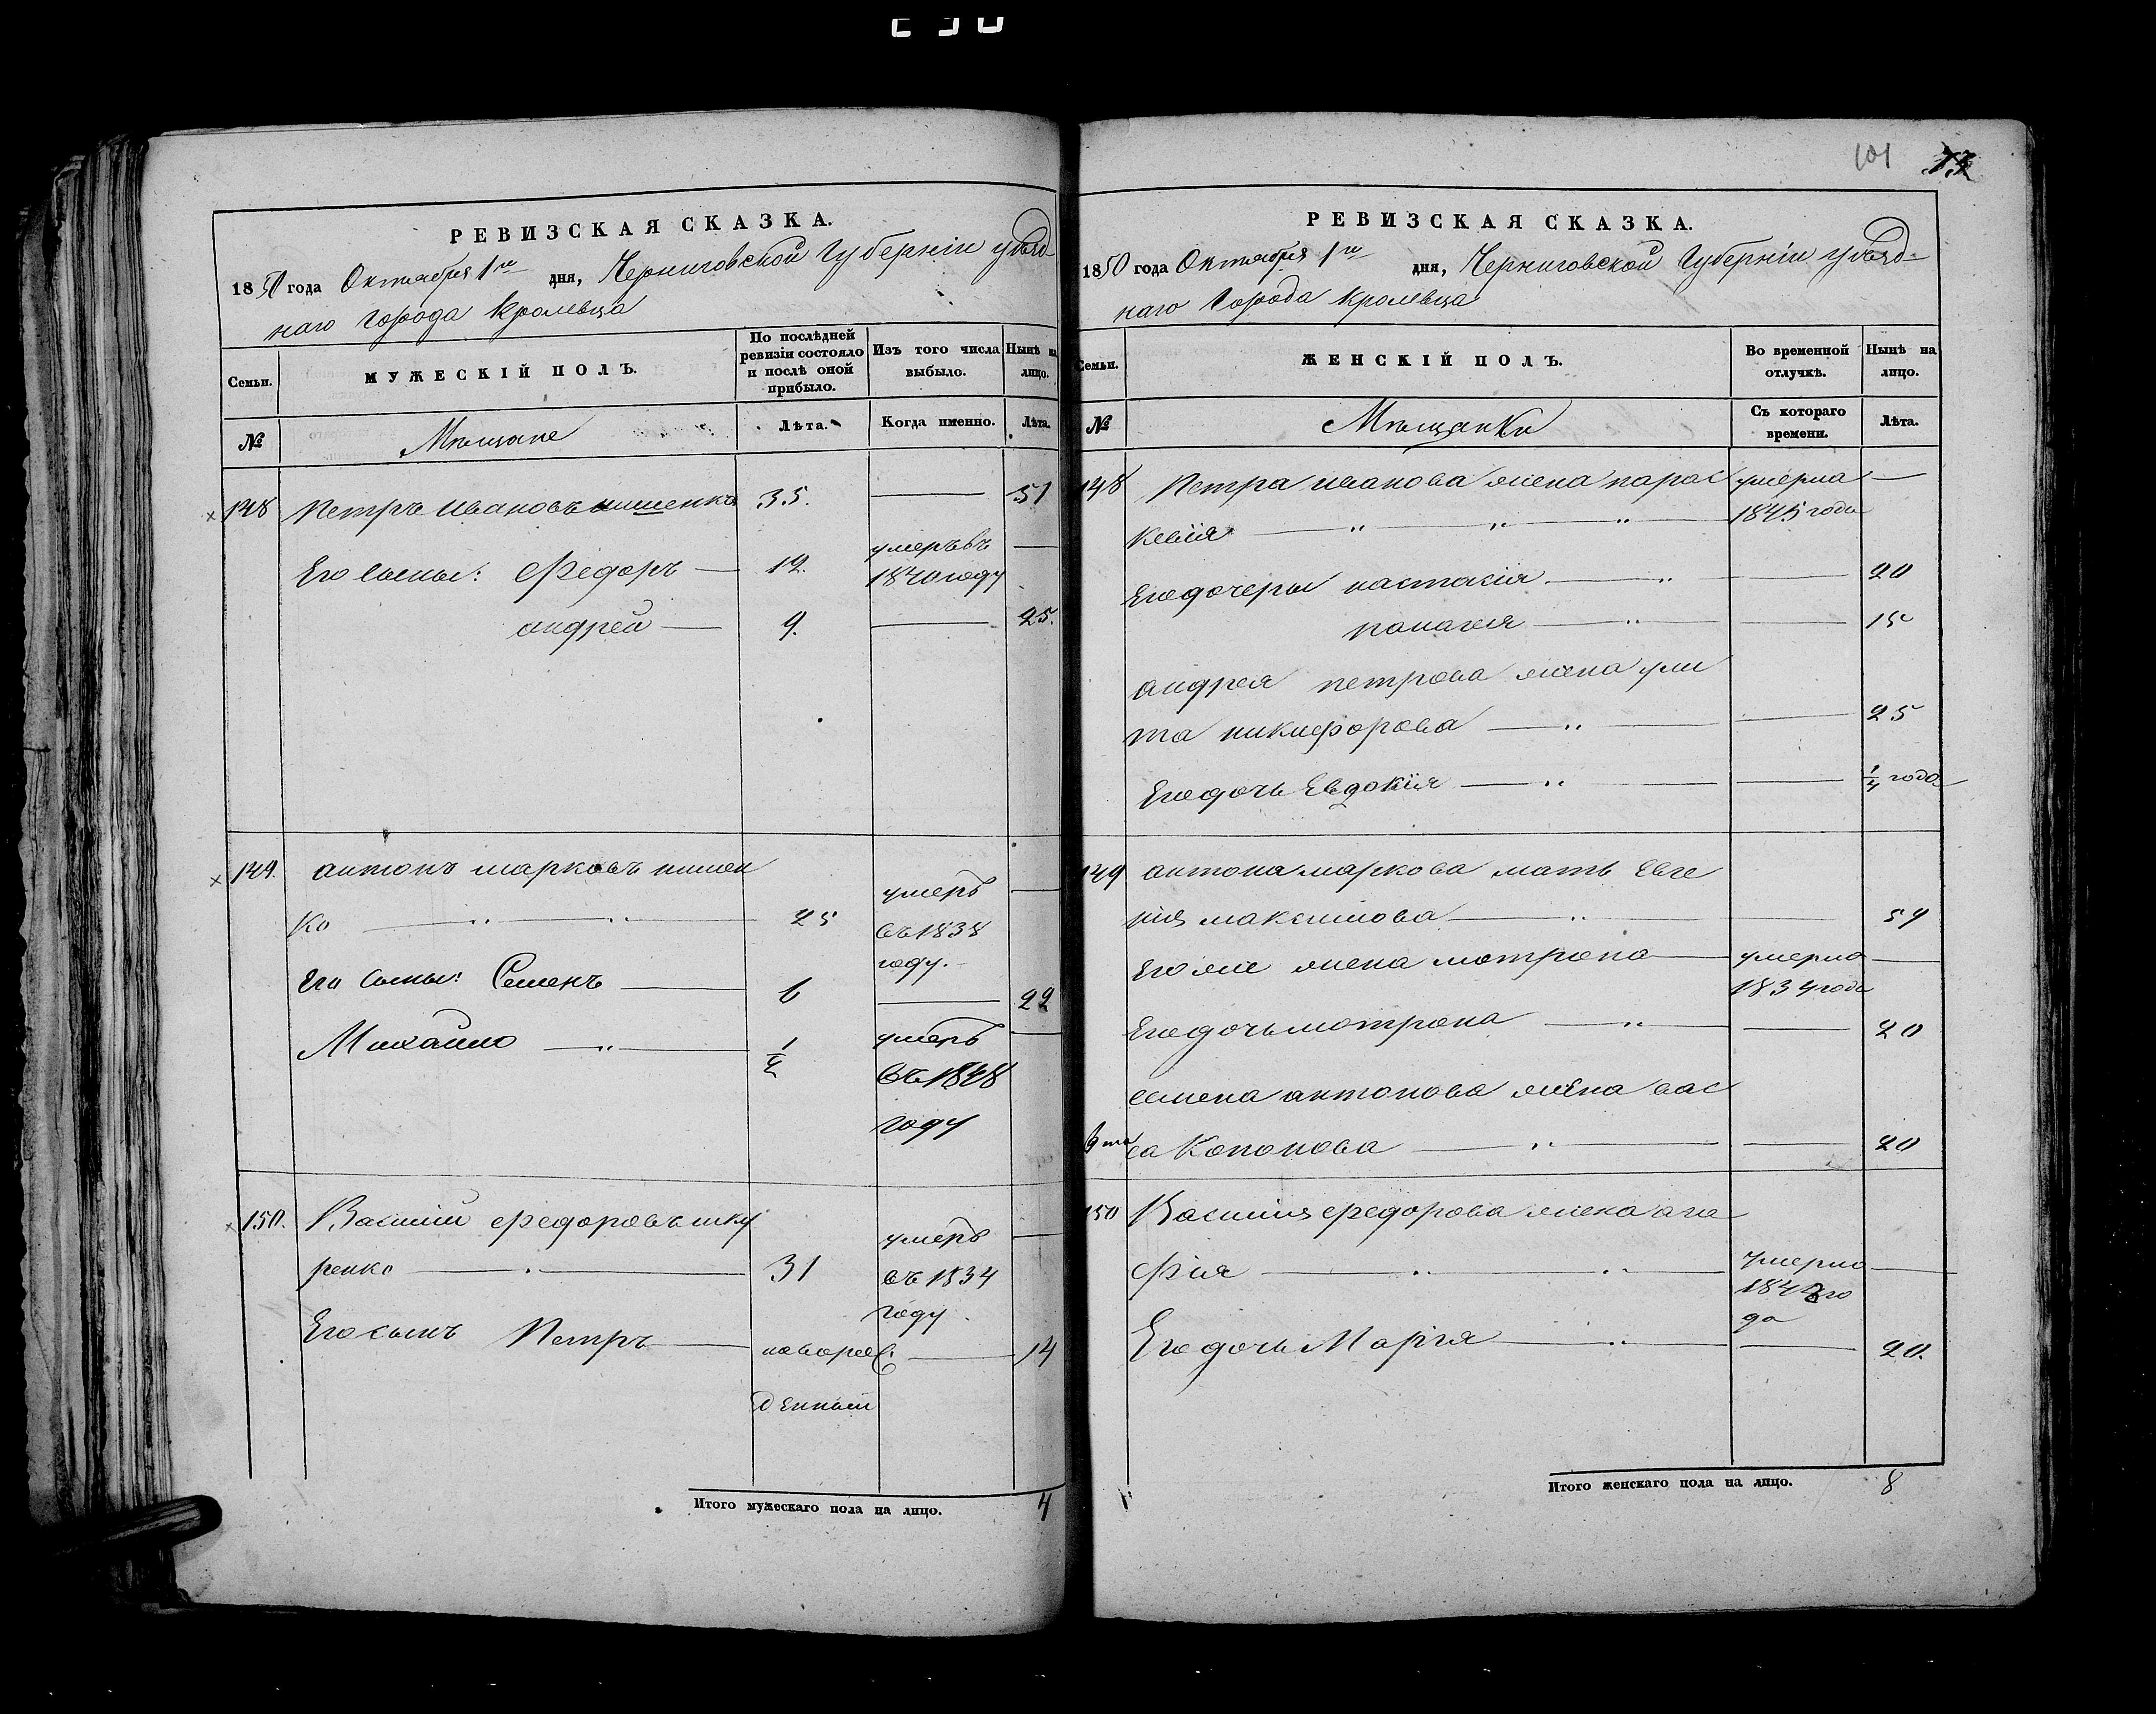 РЕВИЗСКАЯ СКАЗКА.
1850 года Октября 1го дня, Черниговской Губерніи уѣзд-
наго города Кролевца
Семьи.
МУЖЕСКІЙ ПОЛЪ.
По послѣдней ревизіи состояло и послѣ оной прибыло.
Изъ того числа выбыло.
Нынѣ на лицо.
№
Мѣщане
Лѣта.
Когда именно.
Лѣта.
148 Петръ Ивановъ 35. — 51
Его сыны: Федоръ — 12. умеръ въ 1840 году —
андрей — 9. — 25.
149. антонъ марковъ
ко 25 умеръ въ 1838 году. —
Его сыны: Семенъ — 6 — 22
Михайло — умеръ въ 1848 году —
150. Василій федоровъ шку
ренко — 31 умеръ въ 1834 году. —
Его сынъ Петръ — новорож — 14
денный
Итого мужескаго пола на лицо. 4
101
РЕВИЗСКАЯ СКАЗКА.
1850 года Октября 1го дня, Черниговской Губерніи уѣзд-
наго Города Кролевца
Семьи.
ЖЕНСКІЙ ПОЛЪ.
Во временной отлучкѣ.
Нынѣ на лицо.
№
Мѣщанки
Съ котораго времени.
Лѣта.
148 Петра иванова жена парас умерла —
кевія — 1845 года
Его дочеры настасія — 20
панагея — 15
андрея петрова жена ули
та никифорова — 25
Его дочь Евдокія — 1/4 года
149 антона маркова мать Евге
нія максимова — 59
Его же жена мотрона — умерла —
1834 года
Его дочь мотрона — 20
семена антонова жена вас
са Кононова — 20
150 Василія федорова жена ага
фія — умерла —
184 го
да
Его дочь Марія — 20.
Итого женскаго пола на лицо. 8